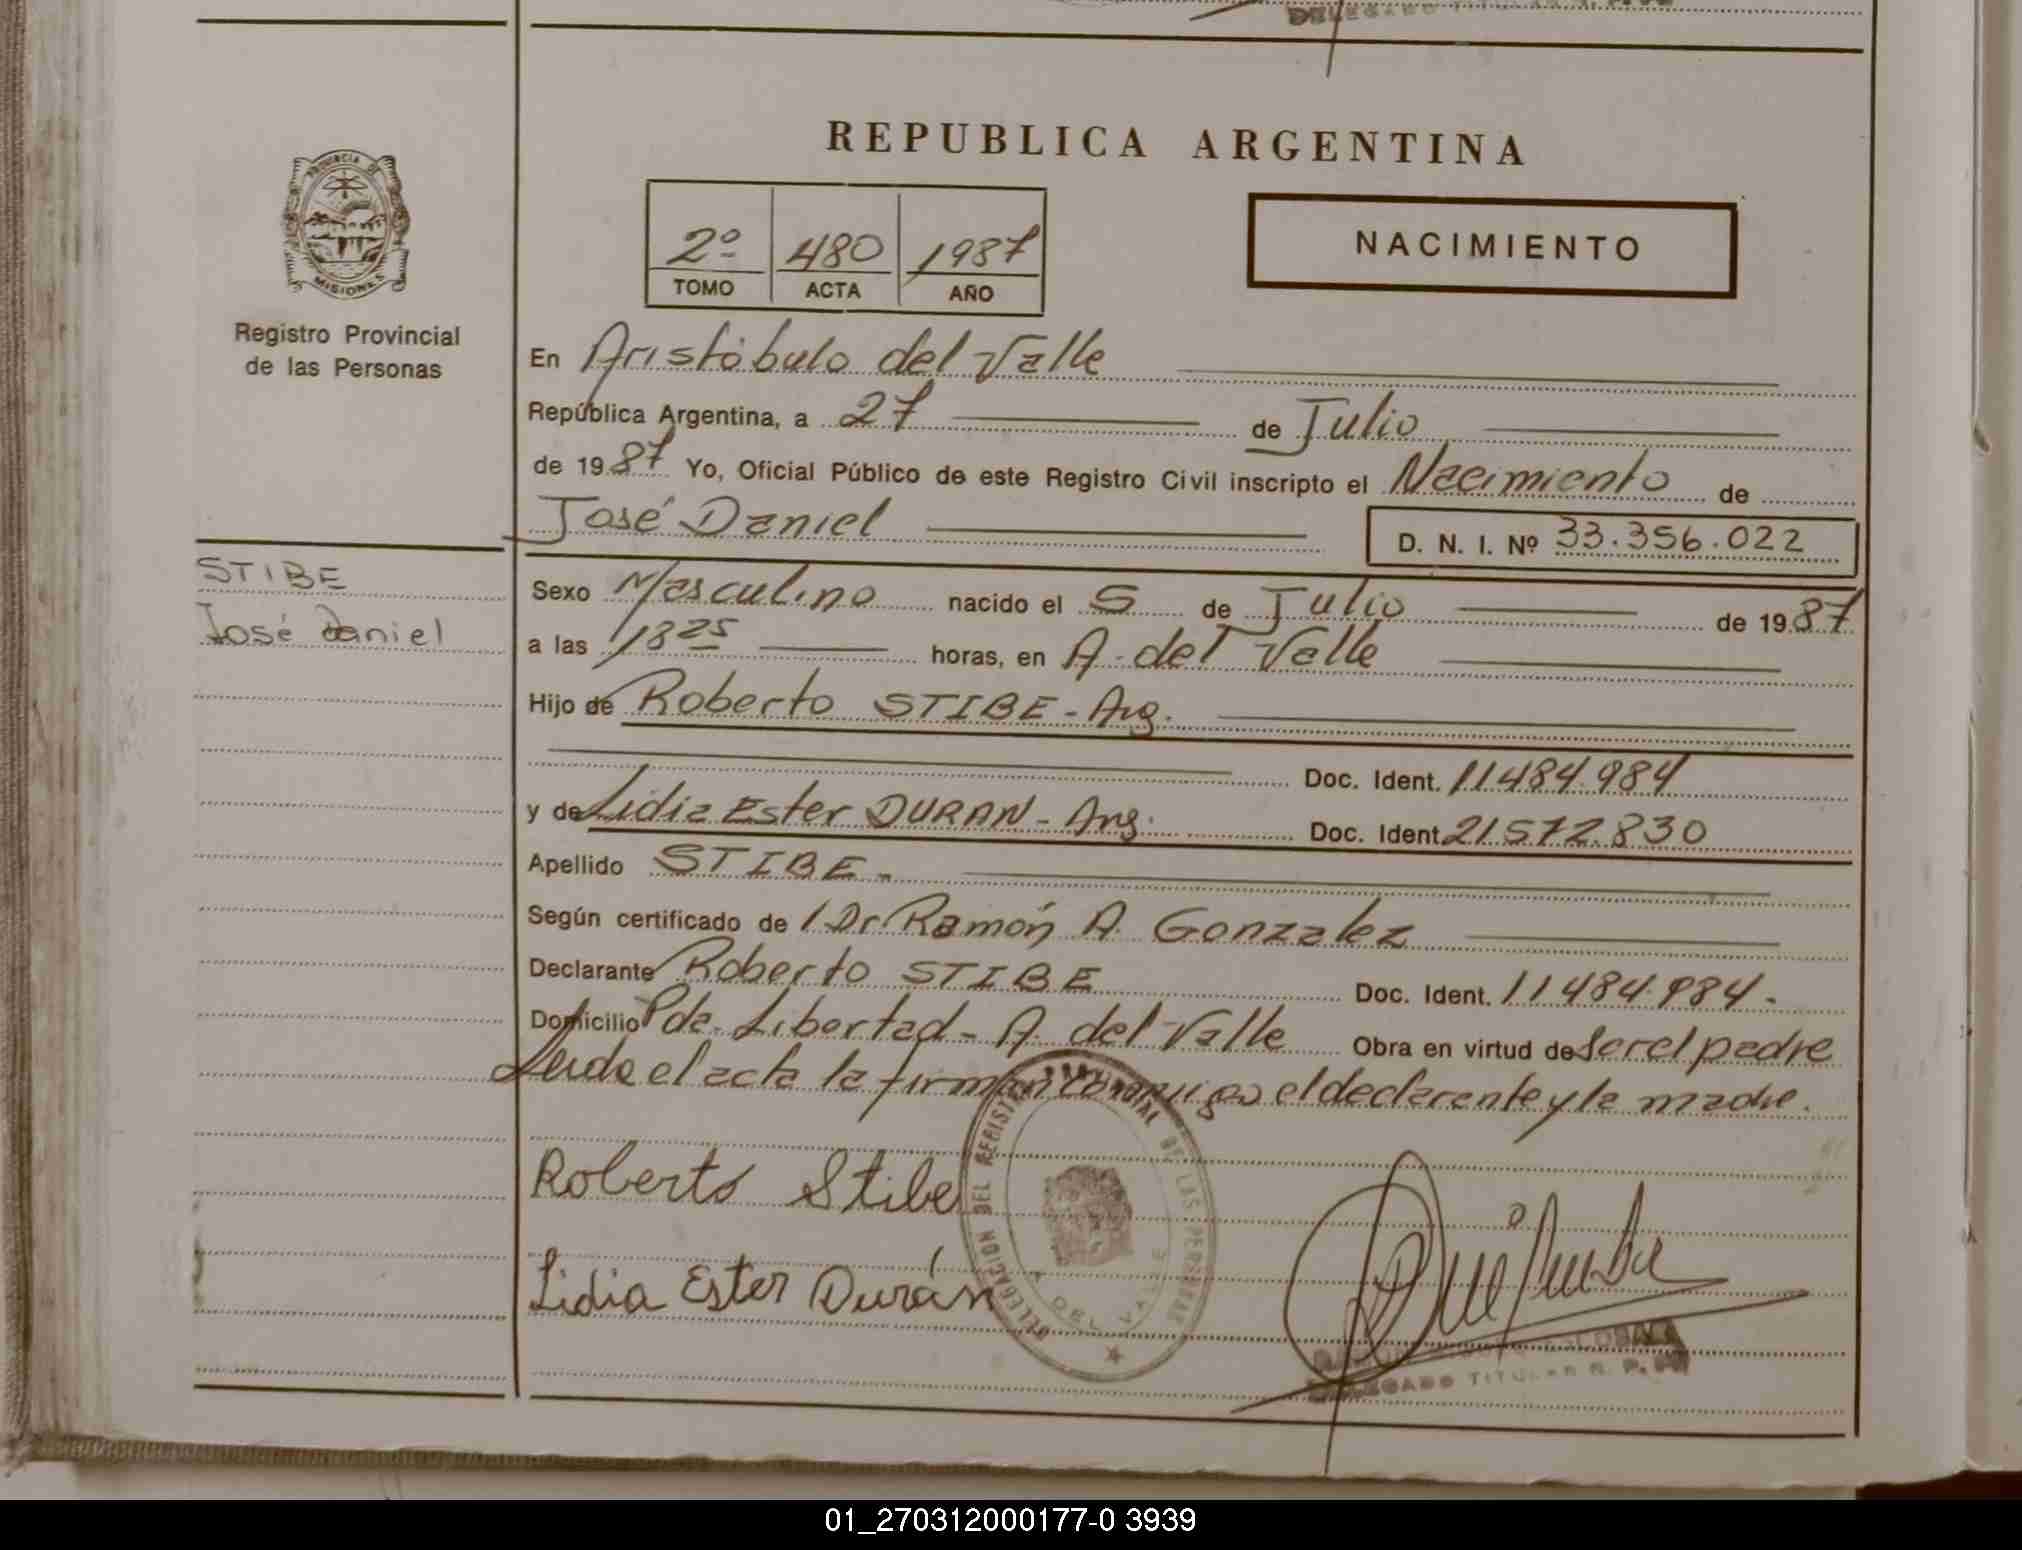 REPUBLICA ARGENTINA
PROVINCIA DE
MISIONES
Registro Provincial
de las Personas
2º 480 1987
TOMO ACTA AÑO
NACIMIENTO
En Aristóbulo del Valle
República Argentina, a 27 de Julio
de 1987 Yo, Oficial Público de este Registro Civil inscripto el Nacimiento de
José Daniel D. N. I. Nº 33.356.022
STIBE
José Daniel
Sexo Masculino nacido el 5 de Julio de 1987
a las 18 25 horas, en A. del Valle
Hijo de Roberto STIBE - Arg.
Doc. Ident. 11484.984
y de Lidia Ester DURAN - Arg. Doc. Ident. 21.572.830
Apellido STIBE.-
Según certificado de l Dr Ramón A. Gonzalez
Declarante Roberto STIBE Doc. Ident. 11484.984.
Domicilio Pda. Libertad - A. del Valle Obra en virtud de Ser el padre
Leida el acta la firman conmigo el declarante y la madre.
Roberto Stibe
Lidia Ester Durán
DELEGACION DEL REGISTRO PROVINCIAL DE LAS PERSONAS
A. DEL VALLE
DELEGADO TITULAR R. P. P.
01_270312000177-0 3939